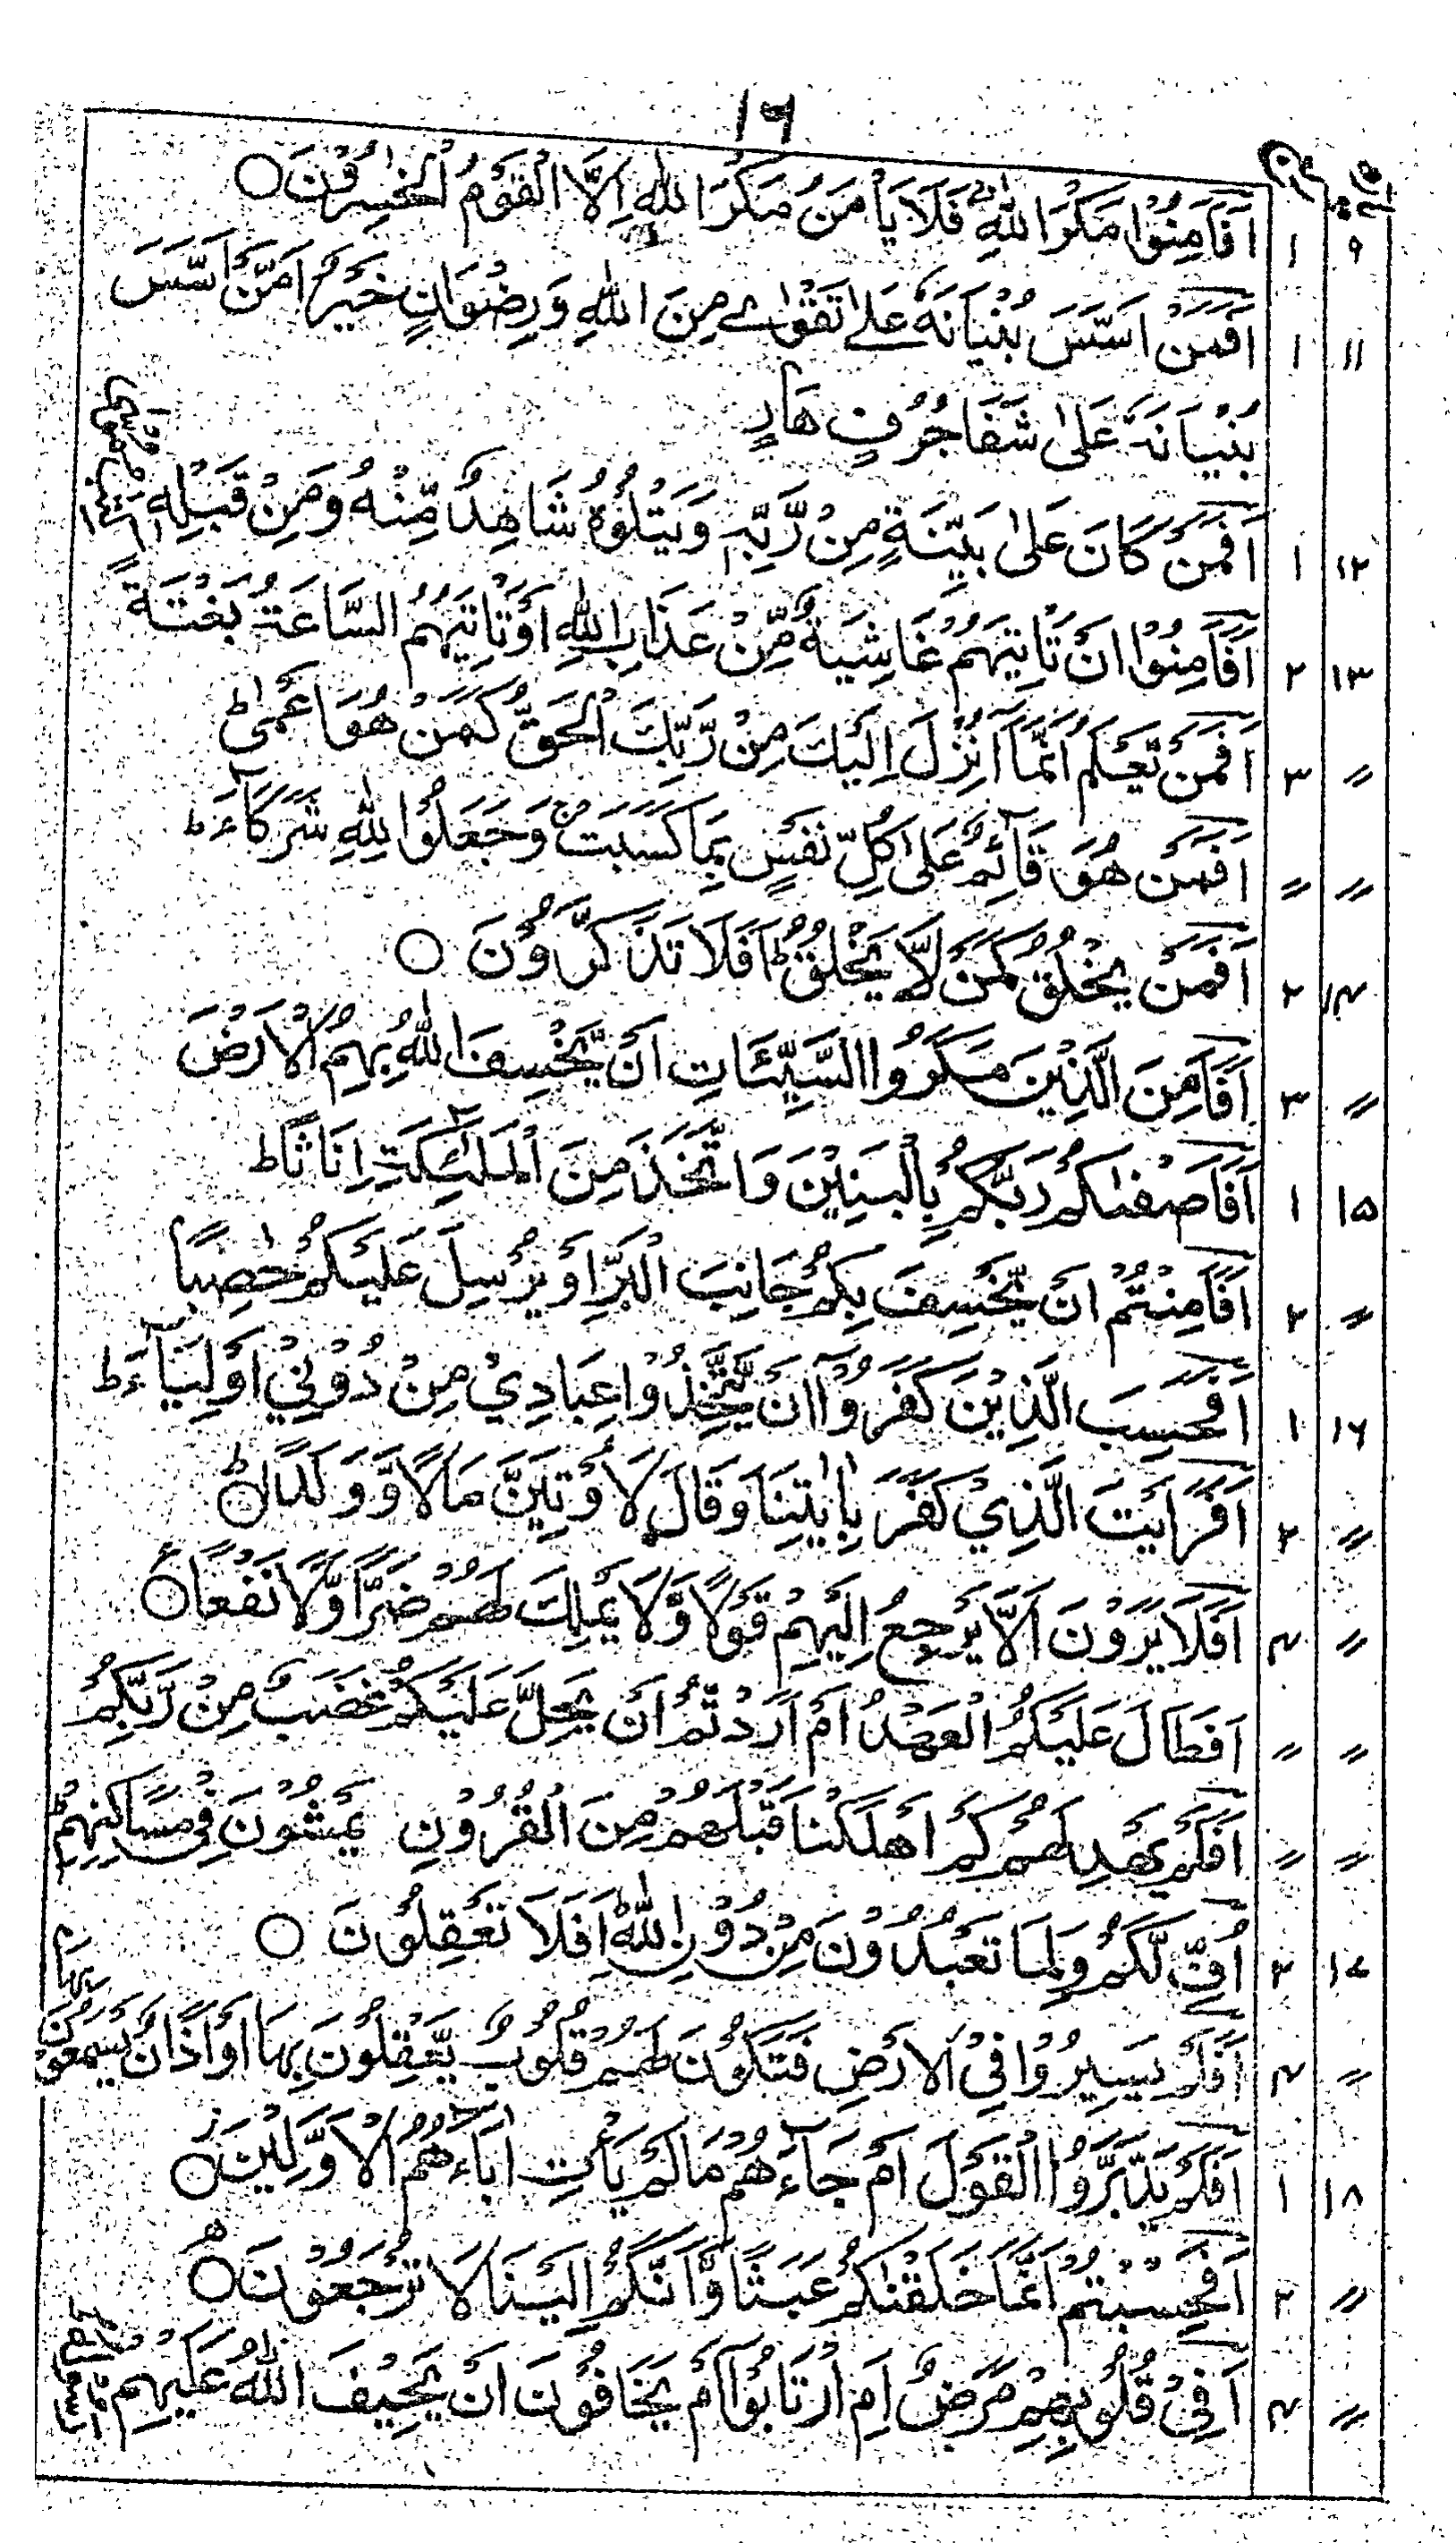 ۱۶
۹ ۱ اَفَاَمِنُوْا مَكْرَ اللّٰهِ ۚ فَلَا يَاْمَنُ مَكْرَ اللّٰهِ اِلَّا الْقَوْمُ الْخٰسِرُوْنَ ○
۱۱ ۱ اَفَمَنْ اَسَّسَ بُنْيَانَهٗ عَلٰے تَقْوٰے مِنَ اللّٰهِ وَرِضْوَانٍ خَيْرٌ اَمْ مَّنْ اَسَّسَ
بُنْيَانَهٗ عَلٰى شَفَا جُرُفٍ هَارٍ
۱۲ ۱ اَفَمَنْ كَانَ عَلٰى بَيِّنَةٍ مِنْ رَّبِّهٖ وَيَتْلُوْهُ شَاهِدٌ مِّنْهُ وَمِنْ قَبْلِهٖ
۱۳ ۲ اَفَاَمِنُوْا اَنْ تَاْتِيَهُمْ غَاشِيَةٌ مِّنْ عَذَابِ اللّٰهِ اَوْ تَاْتِيَهُمُ السَّاعَةُ بَغْتَةً
〃 ۳ اَفَمَنْ يَّعْلَمُ اَنَّمَآ اُنْزِلَ اِلَيْكَ مِنْ رَّبِّكَ الْحَقُّ كَمَنْ هُوَ اَعْمٰى ط
〃 〃 اَفَمَنْ هُوَ قَآئِمٌ عَلٰى كُلِّ نَفْسٍ بِمَا كَسَبَتْ ج وَجَعَلُوْا لِلّٰهِ شُرَكَآءَ ط
۱۴ ۲ اَفَمَنْ يَخْلُقُ كَمَنْ لَّا يَخْلُقُ ط اَفَلَا تَذَكَّرُوْنَ ○
〃 ۳ اَفَاَمِنَ الَّذِيْنَ مَكَرُوا السَّيِّئَاتِ اَنْ يَّخْسِفَ اللّٰهُ بِهِمُ الْاَرْضَ
۱۵ ۱ اَفَاَصْفٰىكُمْ رَبُّكُمْ بِالْبَنِيْنَ وَاتَّخَذَ مِنَ الْمَلٰٓئِكَةِ اِنَاثًا ط
〃 ۲ اَفَاَمِنْتُمْ اَنْ يَّخْسِفَ بِكُمْ جَانِبَ الْبَرِّ اَوْ يُرْسِلَ عَلَيْكُمْ حَاصِبًا
۱۶ ۱ اَفَحَسِبَ الَّذِيْنَ كَفَرُوْآ اَنْ يَّتَّخِذُوْا عِبَادِيْ مِنْ دُوْنِيْ اَوْلِيَآءَ ط
〃 ۲ اَفَرَاَيْتَ الَّذِيْ كَفَرَ بِاٰيٰتِنَا وَقَالَ لَاُوْتَيَنَّ مَالًا وَّوَلَدًا ط ○
〃 ۴ اَفَلَا يَرَوْنَ اَلَّا يَرْجِعُ اِلَيْهِمْ قَوْلًا وَّلَا يَمْلِكُ لَهُمْ ضَرًّا وَّلَا نَفْعًا ○ ع
〃 〃 اَفَطَالَ عَلَيْكُمُ الْعَهْدُ اَمْ اَرَدْتُّمْ اَنْ يَّحِلَّ عَلَيْكُمْ غَضَبٌ مِنْ رَّبِّكُمْ
〃 〃 اَفَلَمْ يَهْدِ لَهُمْ كَمْ اَهْلَكْنَا قَبْلَهُمْ مِنَ الْقُرُوْنِ يَمْشُوْنَ فِيْ مَسَاكِنِهِمْ ط
۱۷ ۳ اُفٍّ لَّكُمْ وَلِمَا تَعْبُدُوْنَ مِنْ دُوْنِ اللّٰهِ ط اَفَلَا تَعْقِلُوْنَ ○
〃 ۴ اَفَلَمْ يَسِيْرُوْا فِي الْاَرْضِ فَتَكُوْنَ لَهُمْ قُلُوْبٌ يَّعْقِلُوْنَ بِهَا اَوْ اٰذَانٌ يَّسْمَعُوْنَ بِهَا
۱۸ ۱ اَفَلَمْ يَدَّبَّرُوا الْقَوْلَ اَمْ جَآءَهُمْ مَالَمْ يَاْتِ اٰبَآءَهُمُ الْاَوَّلِيْنَ ز ○
〃 ۲ اَفَحَسِبْتُمْ اَنَّمَا خَلَقْنٰكُمْ عَبَثًا وَّاَنَّكُمْ اِلَيْنَا لَا تُرْجَعُوْنَ ○
〃 ۴ اَفِيْ قُلُوْبِهِمْ مَّرَضٌ اَمِ ارْتَابُوْا اَمْ يَخَافُوْنَ اَنْ يَّحِيْفَ اللّٰهُ عَلَيْهِمْ